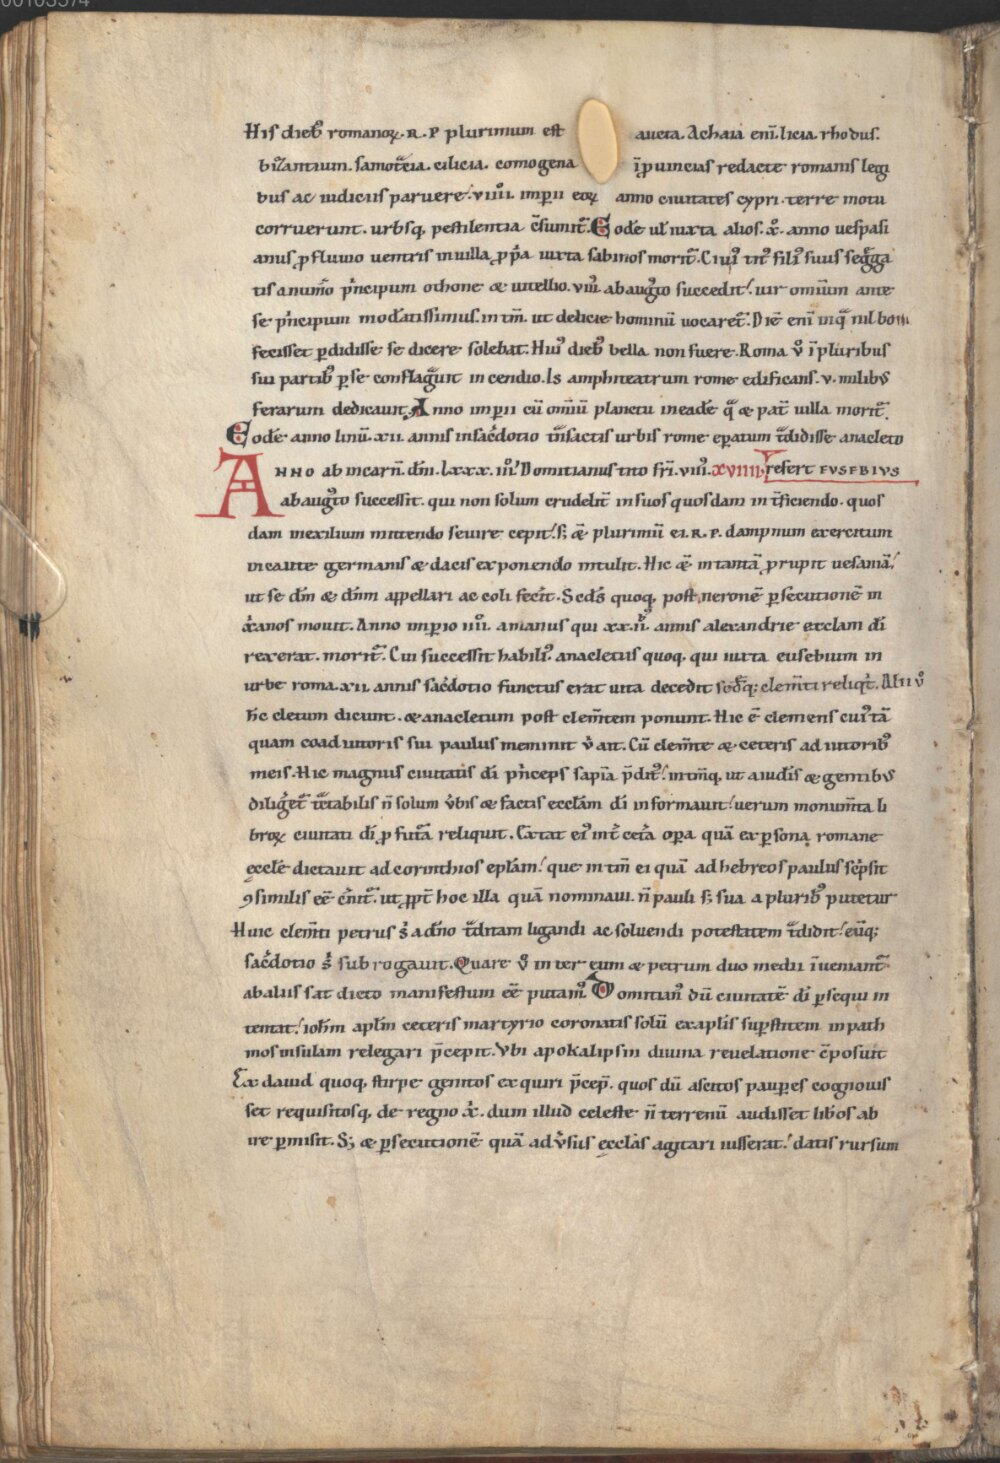 00103574
Hıſ dieb᷒ romanoꝝ. R. P plurimum eſt aucta. Achaia eni̅. licia. rhoduſ.
biẓantium. ſamotͣcia. cilicia. comogena i̅ ꝓuinciaſ redacte romaniſ legi
buſ ac iudiciiſ paruere. VIIII. imp̅ii eoꝝ anno ciuitateſ cypri. terre motu
corruerunt. urbſq, peſtilentia c̅ſumit᷑. Eode̅ ut iuxta alioſ. x̊. anno ueſpaſi
anuſ ꝓfluuio uentriſ in uilla ꝓpͥa iuxta ſabinoſ morit᷑. Cui᷒ tit᷒ fili᷒ ſuuſ ſegͤga
tiſ a numͦo pͥncipum othone & uitellio. VIII᷒ ab auguͦto ſuccedit.ʼ uir omiu̅m ante
ſe pͥncipum moderatiſſimuſ. in tm̅. ut delicie hominu̅ uocaret᷑. Die̅ eni̅ inqͣ nil boni
feciſſet ꝑdidiſſe ſe dicere ſolebat. Hui᷒ dieb᷒ bella non fuere. Roma ů i̅ pluribuſ
ſui partib᷒ ꝑ ſe conflagͣuit incendio. Iſ amphiteatrum rome edificanſ. V. milib᷒
ferarum dedicauit. Anno imp̅ii cu̅ om̅iu̅ planctu in eade̅ qͣ & pat᷑ uilla morit᷑.
Eode̅ anno linu̅. XII. anniſ in ſac̅dotio tͣnſactiſ urbiſ rome ep̅atum tͣdidiſſe anacleto
ANNO ab incarn̅. dn̅i. lxxx. III᷒ Domitianuſ tito fr̅i. VIII᷒. XVIIII. refert EVSEBIVS
ab auguͦto ſucceſſit. qui non ſolum crudelit᷑ in ſuoſ quoſdam int᷑ficiendo. quoſ
dam in exilium mittendo ſeuire cepit.ʼ ſ; & plurimu̅ ei. R. P. dampnum exercitum
incaute germaniſ & daciſ exponendo intulit. Hic & in tanta̅ ꝓrupit ueſania̅.ʼ
ut ſe dm̅ & dn̅m appellari ac coli fecit. Sc̅dſ quoq, poſt nerone̅ ꝑſecutione̅ in
x̅anoſ mouit. Anno imperio IIII. amanuſ qui XX.II. anniſ alexandrie eccl̅am di̅
rexerat. morit᷑. Cui ſucceſſit habili᷒. anacletuſ quoq, qui iuxta euſebium in
urbe roma. XII. anniſ ſac̅dotio functuſ erat uita decedit ſedeq; clem̅ti reliqͥt. Alii ů
h̅c cletum dicunt. & anacletum poſt clem̅tem ponunt. Hic e̅ clemenſ cui᷒ ta̅
quam coadiutoriſ ſui paulus meminit u̅ ait. Cu̅ clem̅te & ceteriſ adiutorib᷒
meiſ. Hic magnuſ ciuitatiſ di̅ pͥncepſ ſapi̅a p̅dit᷒.ʼ intm̅q, ut aiud̅iſ & gentib᷒
diliget᷑ tͣctabiliſ n̅ ſolum u̅biſ & factiſ eccl̅am di̅ informauit.ʼ uerum monum̅ta li
broꝝ ciuitati di̅ ꝓfutͣa reliquit. Extat ei᷒ int᷑ cet᷑a op̅a qua̅ ex ꝑſona romane
eccl̅e dictauit ad corinthioſ ep̅lam.ʼ que in tm̅ ei qua̅ ad hebreoſ pauluſ ſcͥpſit
ꝯſimiliſ ee̅ c̅nit᷑. ut ꝓpt᷑ hoc illa qua̅ nominaui. n̅ pauli ſ; ſua a plurib᷒ putetur
Huic clem̅ti petruſ s̊ a dn̅o tͣditam ligandi ac ſoluendi poteſtatem tͣdidit.ʼ eu̅q;
ſac̅dotio s̊ ſubrogauit. Quare ů inter eum & petrum duo medii i̅ueniant᷑
ab aliiſ ſat dicto manifeſtum ee̅ putam᷒. Domitian᷒ du̅ ciuitate̅ di̅ ꝑſequi in
tentat.ʼ ioh̅m apl̅m ceteriſ martyrio coronatiſ ſolu̅ ex apl̅iſ ſuꝑſtitem in path
moſ inſulam relegari p̅cepit. Vbi apokalipſin diuina reuelatione c̅poſuit
Ex dauid quoq, ſtirpe genitoſ exquiri p̅cep̅. quoſ du̅ aſcitoſ pauꝑeſ cognouiſ
ſet requiſitoſq, de regno x̅. dum illud celeſte n̅ terrenu̅ audiſſet lib̅oſ ab
ire ꝑmiſit. S; & ꝑſecutione̅ qua̅ adu̅ſuſ eccl̅aſ agitari iuſſerat.ʼ datiſ rurſum